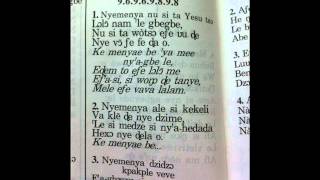 be
9.6.9.6.9.8.9.8
1. Nyemenya nu si ta Yesu to
Lɔlɔ̃ nam 'le gbegbe,
Nu si ta wòtsɔ eƒe ʋu ɖe
Nye vɔ̃ ƒe fe ɖa o.
Ke menyae be 'ya mee
ny'a-gbe le,
Eɖem to eƒe lɔlɔ̃ me
Eƒ'a-si, si worɖe tanye,
Mele eƒe vava lalam.
2. Nyemenya ale si kekeli
Va klẽ ɖe nye dzime,
'Le si medze si ny'a-hedada
Hexɔ nye ɖela o.
Ke menyae be...
3. Nyemenya dzidzɔ
kpakple veve
2. A
He
le
Br
De
4.